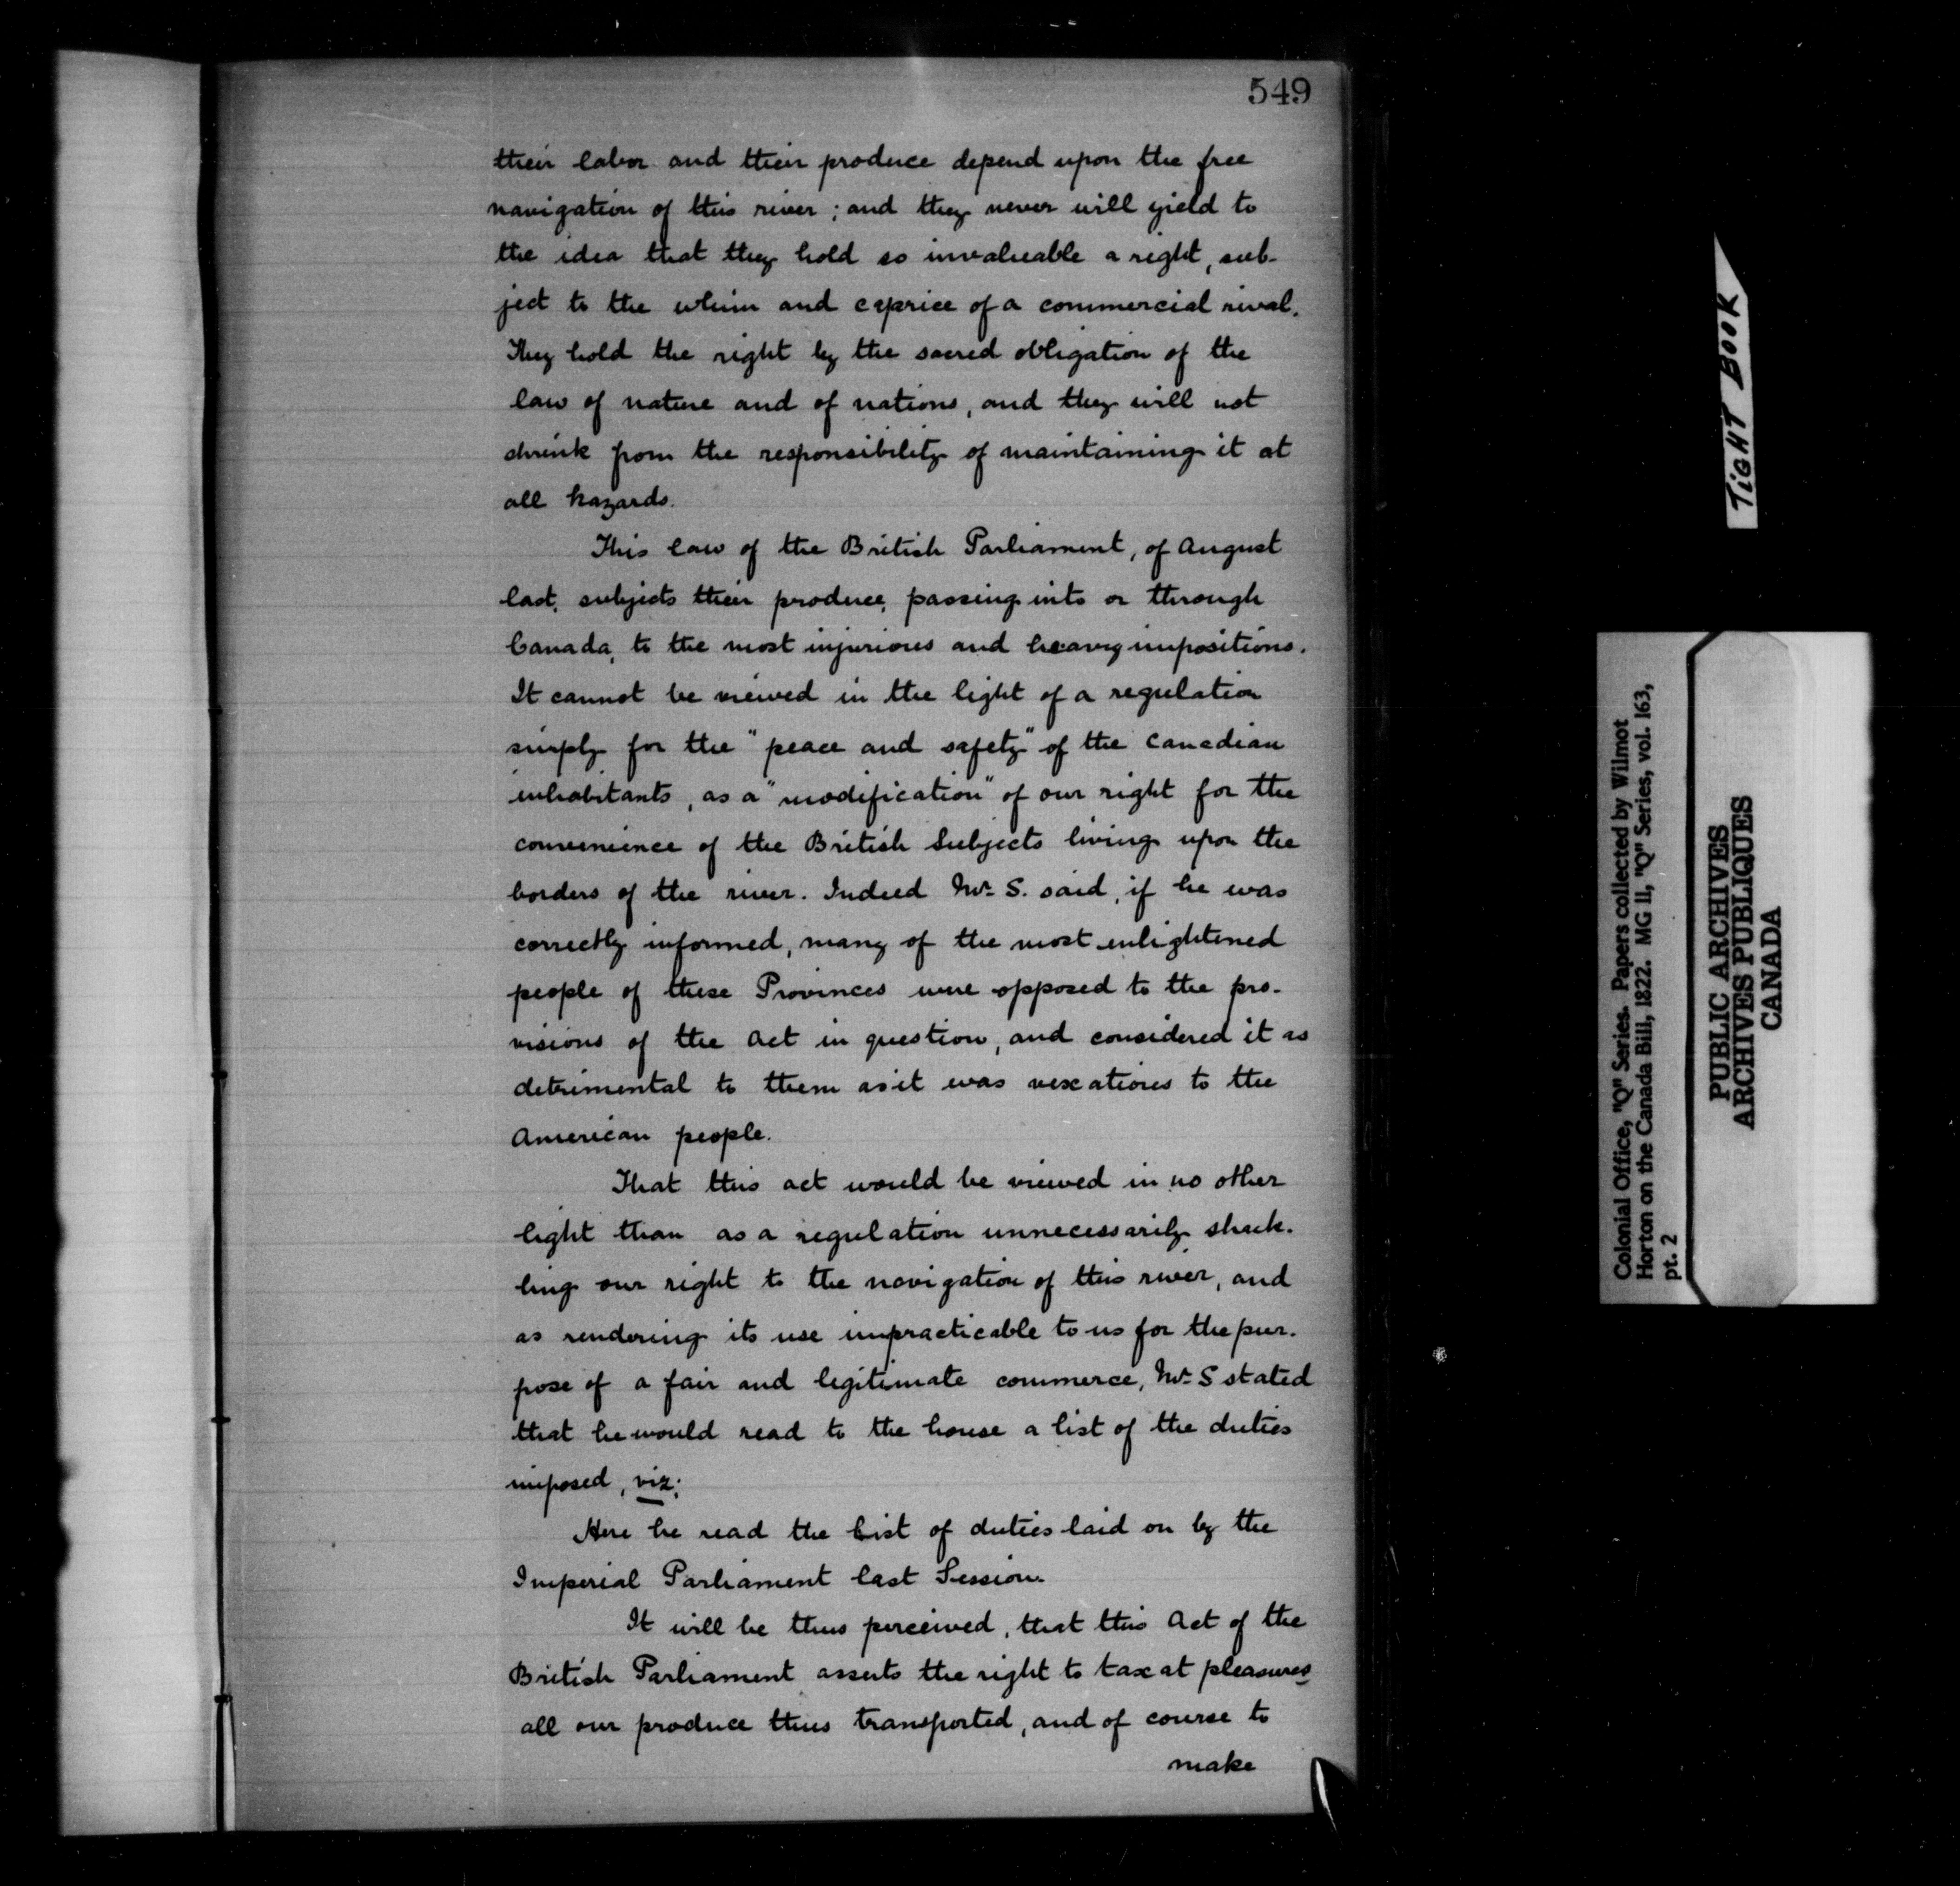 549
their labor and their produce depend upon the free
navigation of this river; and they never will yield to
the idea that they hold so invaluable a right, sub-
ject to the whim and caprice of a commercial rival.
They hold the right by the sacred obligation of the
law of nature and of nations, and they will not
shrink from the responsibility of maintaining it at
all hazards.
This law of the British Parliament, of August
last, subjects their produce, passing into or through
Canada, to the most injurious and heavy impositions.
It cannot be viewed in the light of a regulation
simply for the "peace and safety" of the Canadian
inhabitants, as a "modification" of our right for the
convenience of the British Subjects living upon the
borders of the river. Indeed Mr. S. said, if he was
correctly informed, many of the most enlightened
people of these Provinces were opposed to the pro-
visions of the Act in question, and considered it as
detrimental to them as it was vexatious to the
American people.
That this act would be viewed in no other
light than as a regulation unnecessarily shack-
ling our right to the navigation of this river, and
as rendering its use impracticable to us for the pur-
pose of a fair and legitimate commerce, Mr. S stated
that he would read to the house a list of the duties
imposed, viz:
Here he read the List of duties laid on by the
Imperial Parliament last Session.
It will be thus perceived, that this Act of the
British Parliament asserts the right to tax at pleasures
all our produce thus transported, and of course to
make
TIGHT BOOK
Colonial Office, "Q" Series. Papers collected by Wilmot
Horton on the Canada Bill, 1822. MG 11, "Q" Series, vol. 163,
pt. 2
PUBLIC ARCHIVES
ARCHIVES PUBLIQUES
CANADA